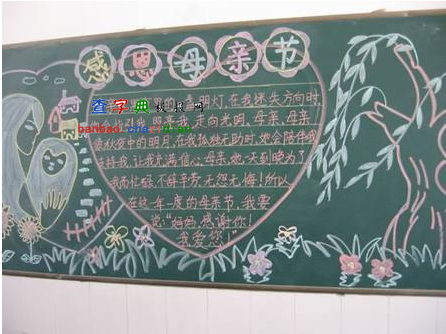 感恩母亲节
查字典 板报网
banbao.chazidian
明灯,在我迷失方向时,
照亮我,走向光明,母亲,母亲
秋夜中的明月,在我孤独无助时,她会陪伴我
支持我,让我充满信心;母亲,她一天到晚为了
我而忙碌,不辞辛劳,无怨无悔!所以
在这一年一度的母亲节,我要
说:“妈妈,感谢你!
我爱您!”